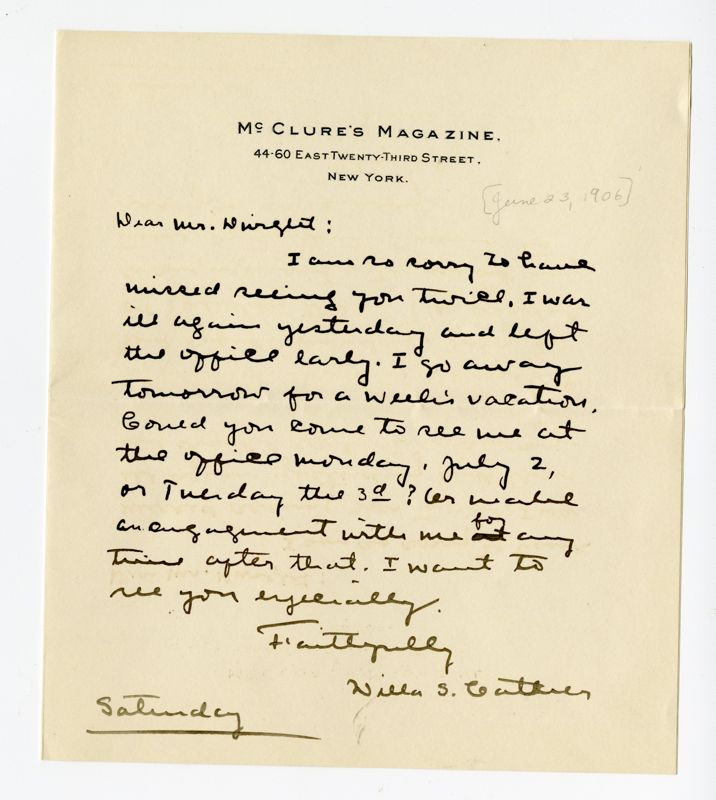 Mc CLURE'S MAGAZINE.
44-60 EAST TWENTY-THIRD STREET,
NEW YORK.
[June 23, 1906]
Dear Mr. Dwight:
I am so sorry to have
missed seeing you twice. I was
ill again yesterday and left
the office early. I go away
tomorrow for a week's vacation.
Could you come to see me at
the office Monday, July 2,
or Tuesday the 3d? Or make
an engagement with me for any
time after that. I want to
see you especially.
Faithfully
Willa S. Cather
Saturday